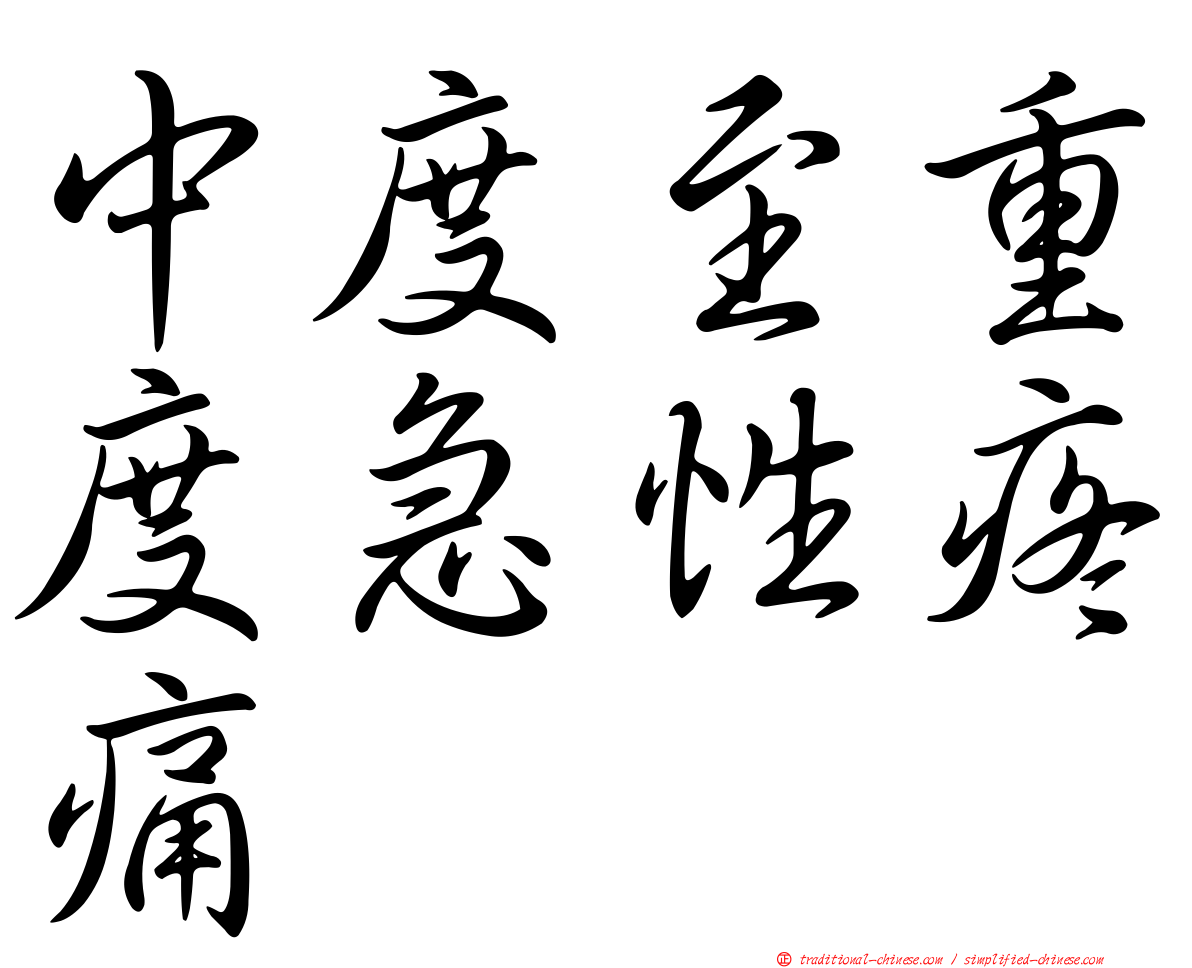 中度至重
度急性疼
痛
㊣ traditional-chinese.com / simplified-chinese.com